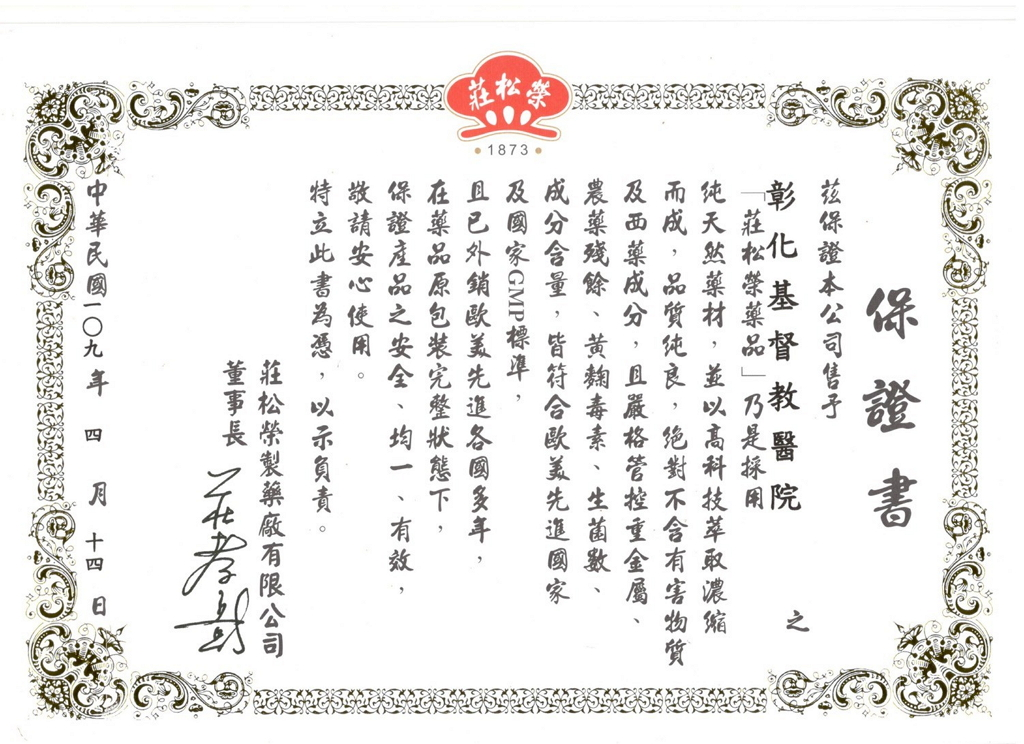 榮松莊
1873
保證書
茲保證本公司售予
彰化基督教醫院 之
「莊松榮藥品」乃是採用
純天然藥材，並以高科技萃取濃縮
而成，品質純良，絕對不含有害物質
及西藥成分，且嚴格管控重金屬、
農藥殘餘、黃麴毒素、生菌數、
成分含量，皆符合歐美先進國家
及國家GMP標準，
且已外銷歐美先進各國多年，
在藥品原包裝完整狀態下，
保證產品之安全、均一、有效，
敬請安心使用。
特立此書為憑，以示負責。
莊松榮製藥廠有限公司
董事長
中華民國一〇九年 四 月 十四 日